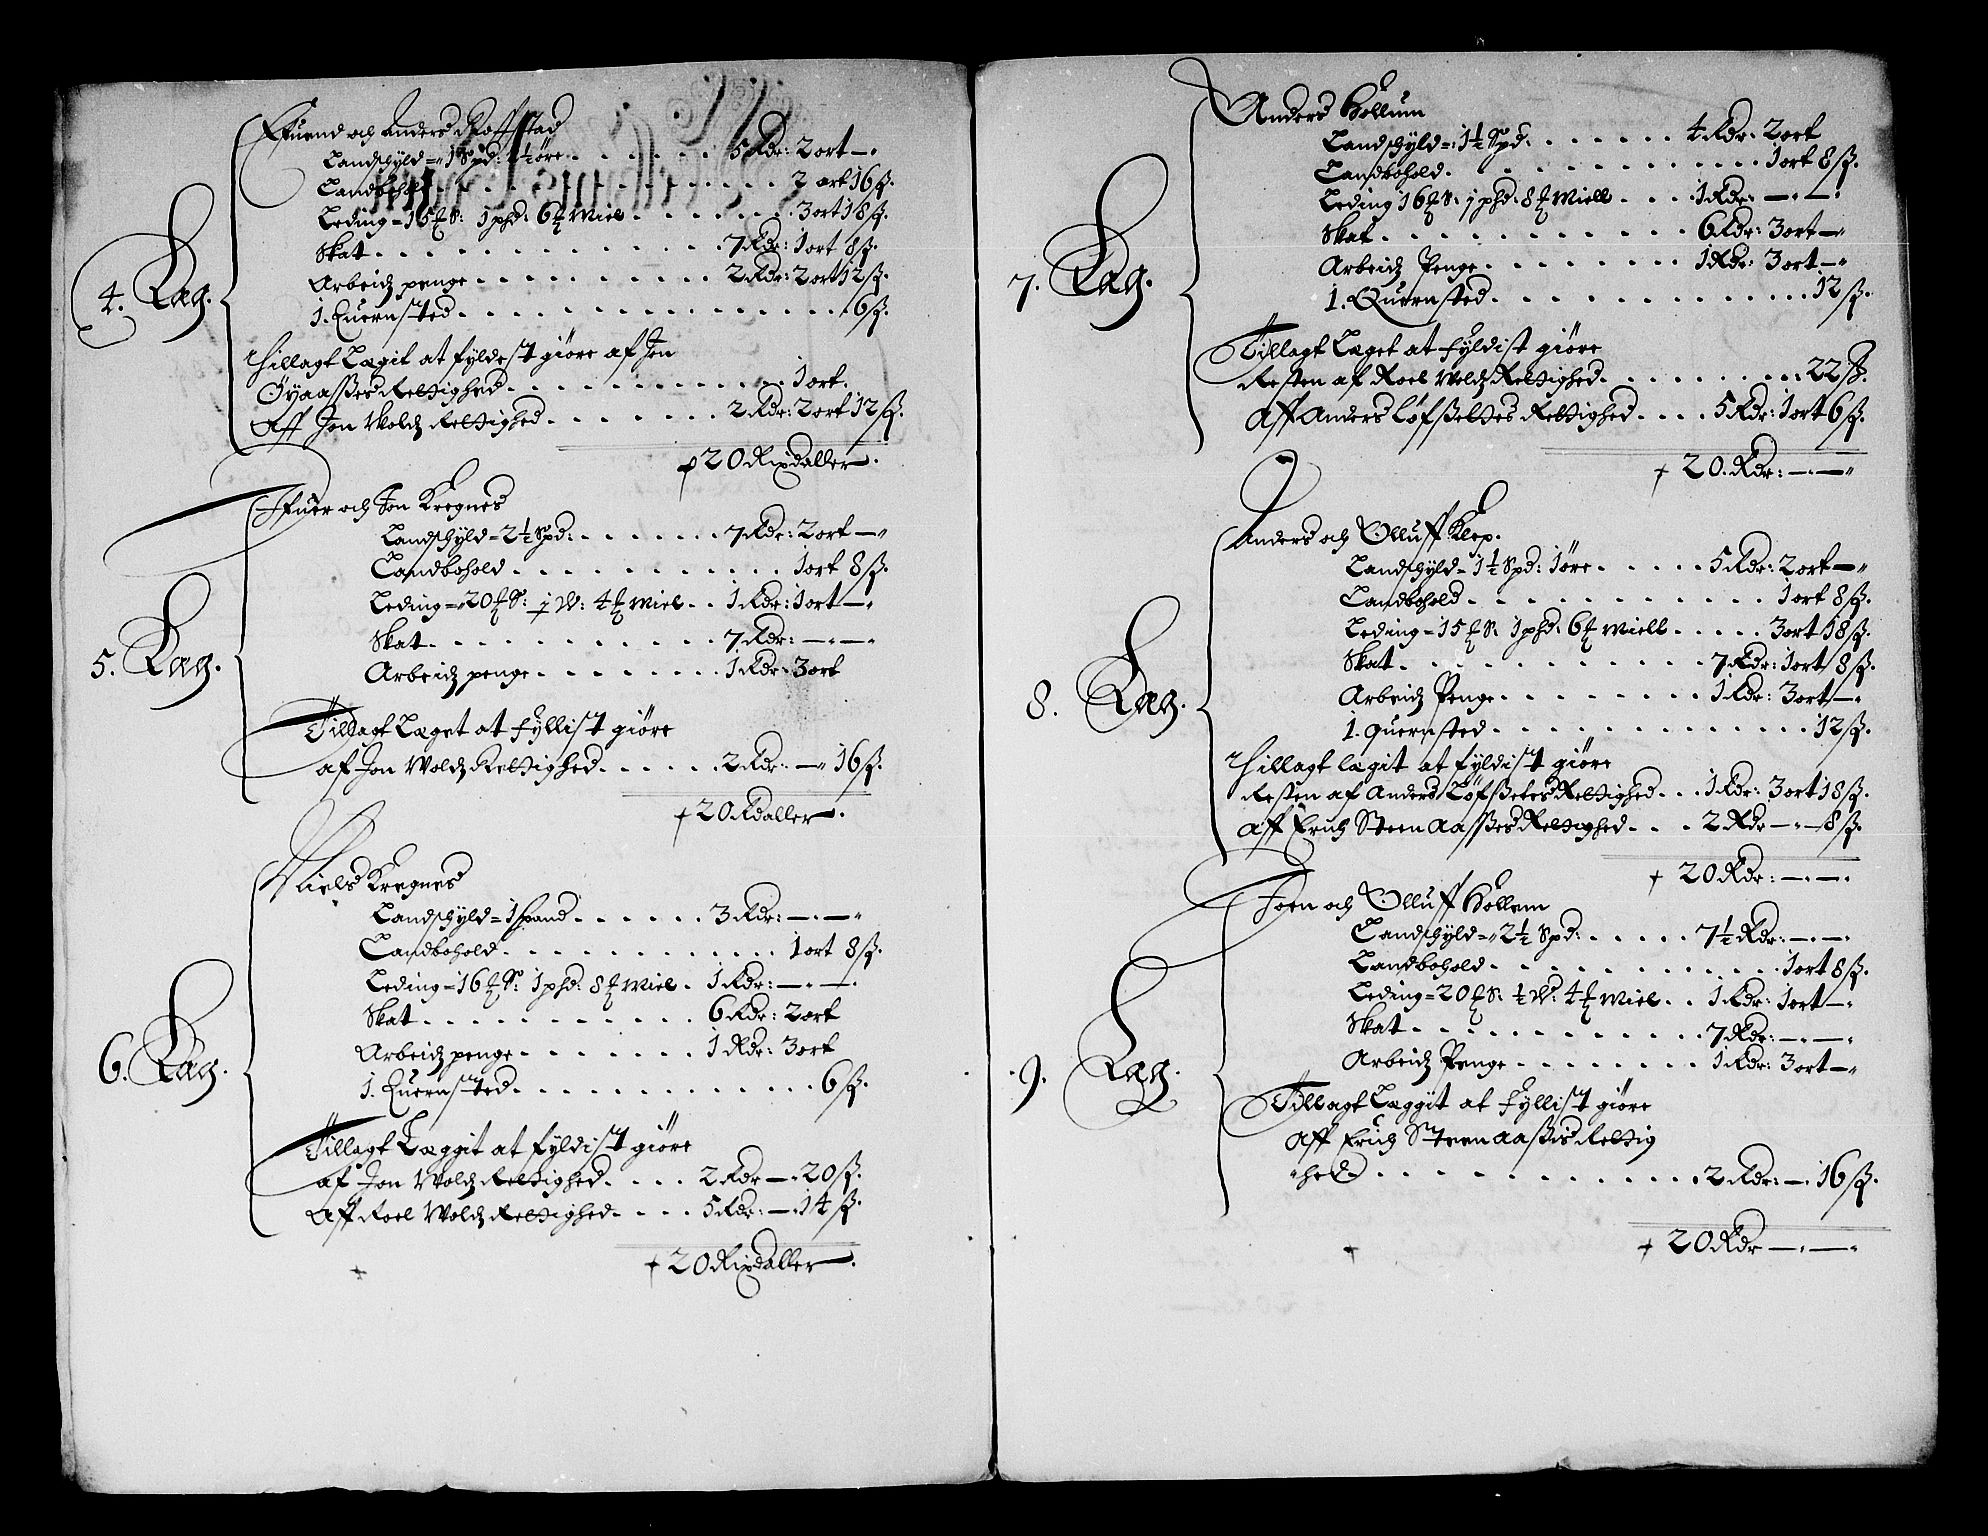 4. Læg.
Effuend och Anders Roffstad
Landschÿld = 1 Spd: 1½ øre . . . 5 Rdr: 2 ort —
Landbohold . . . 2 ort 16 ß.
Leding = 15 ℔ S: 1 phd: 6 ℔ Miel . . . 3 ort 18 ß.
Skat . . . 7 Rdr: 1 ort 8 ß.
Arbeidz penge . . . 2 Rdr: 2 ort 12 ß.
1. Quernsted . . . 6 ß.
Tillagt Lægit at fÿldest giøre af Jon
Øÿaasses Rettighed . . . 1 ort.
Aff Jon Woldz Rettighed . . . 2 Rdr: 2 ort 12 ß.
20 Rixdaller.
5. Læg.
Iffuer och Jon Kregnes
Landschÿld = 2½ Spd: . . . 7 Rdr: 2 ort —
Landbohold . . . 1 ort 8 ß.
Leding = 20 ℔ S: ½ W: 4 ℔ Miel . . 1 Rdr: 1 ort —
Skat . . . 7 Rdr: — —
Arbeidz penge . . . 1 Rdr: 3 ort
Tillagt Læget at fÿllist giøre
af Jon Woldz Rettighed . . . 2 Rdr: — 16 ß.
20 Rdaller.
6. Læg.
Niels Kregnes
Landschÿld = 1 spand . . . 3 Rdr: — —
Landbohold . . . 1 ort 8 ß.
Leding = 16 ℔ S: 1 phd: 8 ℔ Miel . 1 Rdr: — —
Skat . . . 6 Rdr: 2 ort
Arbeidz penge . . . 1 Rdr: 3 ort
1. Quernsted . . . 6 ß.
Tillagt Læggit at fÿldist giøre
af Jon Woldz Rettighed . . . 2 Rdr — 20 ß.
Aff Roel Woldz Rettighed . . . 5 Rdr: — 14 ß.
20 Rixdaller.
7. Læg.
Anders Hollum
Landschÿld = 1½ Spd. . . . 4 Rdr: 2 ort
Landbohold . . . 1 ort 8 ß.
Leding 16 ℔ S: 1 phd: 8 ℔ Miell . . . 1 Rdr: — —
Skat . . . 6 Rdr: 3 ort —
Arbeidz Penge . . . 1 Rdr: 3 ort —
1. Quernsted . . . 12 ß.
Tillagt Læget at fÿldist giøre
Resten af Roel Woldz Rettighed . . . 22 ß.
Aff Anders Løfsettes Rettighed . . . 5 Rdr: 1 ort 6 ß.
20. Rdr: — —
8. Læg.
Anders och Olluff Klep.
Landschÿld = 1½ Spd: 1 øre . . . 5 Rdr: 2 ort —
Landbohold . . . 1 ort 8 ß.
Leding = 15 ℔ S: 1 phd: 6 ℔ Miell . . . 3 ort 18 ß.
Skat . . . 7 Rdr: 1 ort 8 ß.
Arbeidz Penge . . . 1 Rdr: 3 ort —
1. quernsted . . . 12 ß.
Tillagt lægit at fÿldist giøre
Resten af Anders Løfsetes Rettighed . . . 1 Rdr: 3 ort 18 ß.
Aff Erich Steenaasses Rettighed . . . 2 Rdr — 8 ß.
20 Rdr: — —
9. Læg.
Joen och Olluff Hollem
Landschÿld = 2½ Spd: . . . 7½ Rdr: — —
Landbohold . . . 1 ort 8 ß.
Leding = 20 ℔ S: ½ W: 4 ℔ Miel . . 1 Rdr: 1 ort —
Skat . . . 7 Rdr: — —
Arbeidz Penge . . . 1 Rdr: 3 ort —
Tillagt Læggit at fÿllist giøre
Aff Erich Steenaassis Rettig
hed . . . 2 Rdr: — 16 ß.
20 Rdr — —